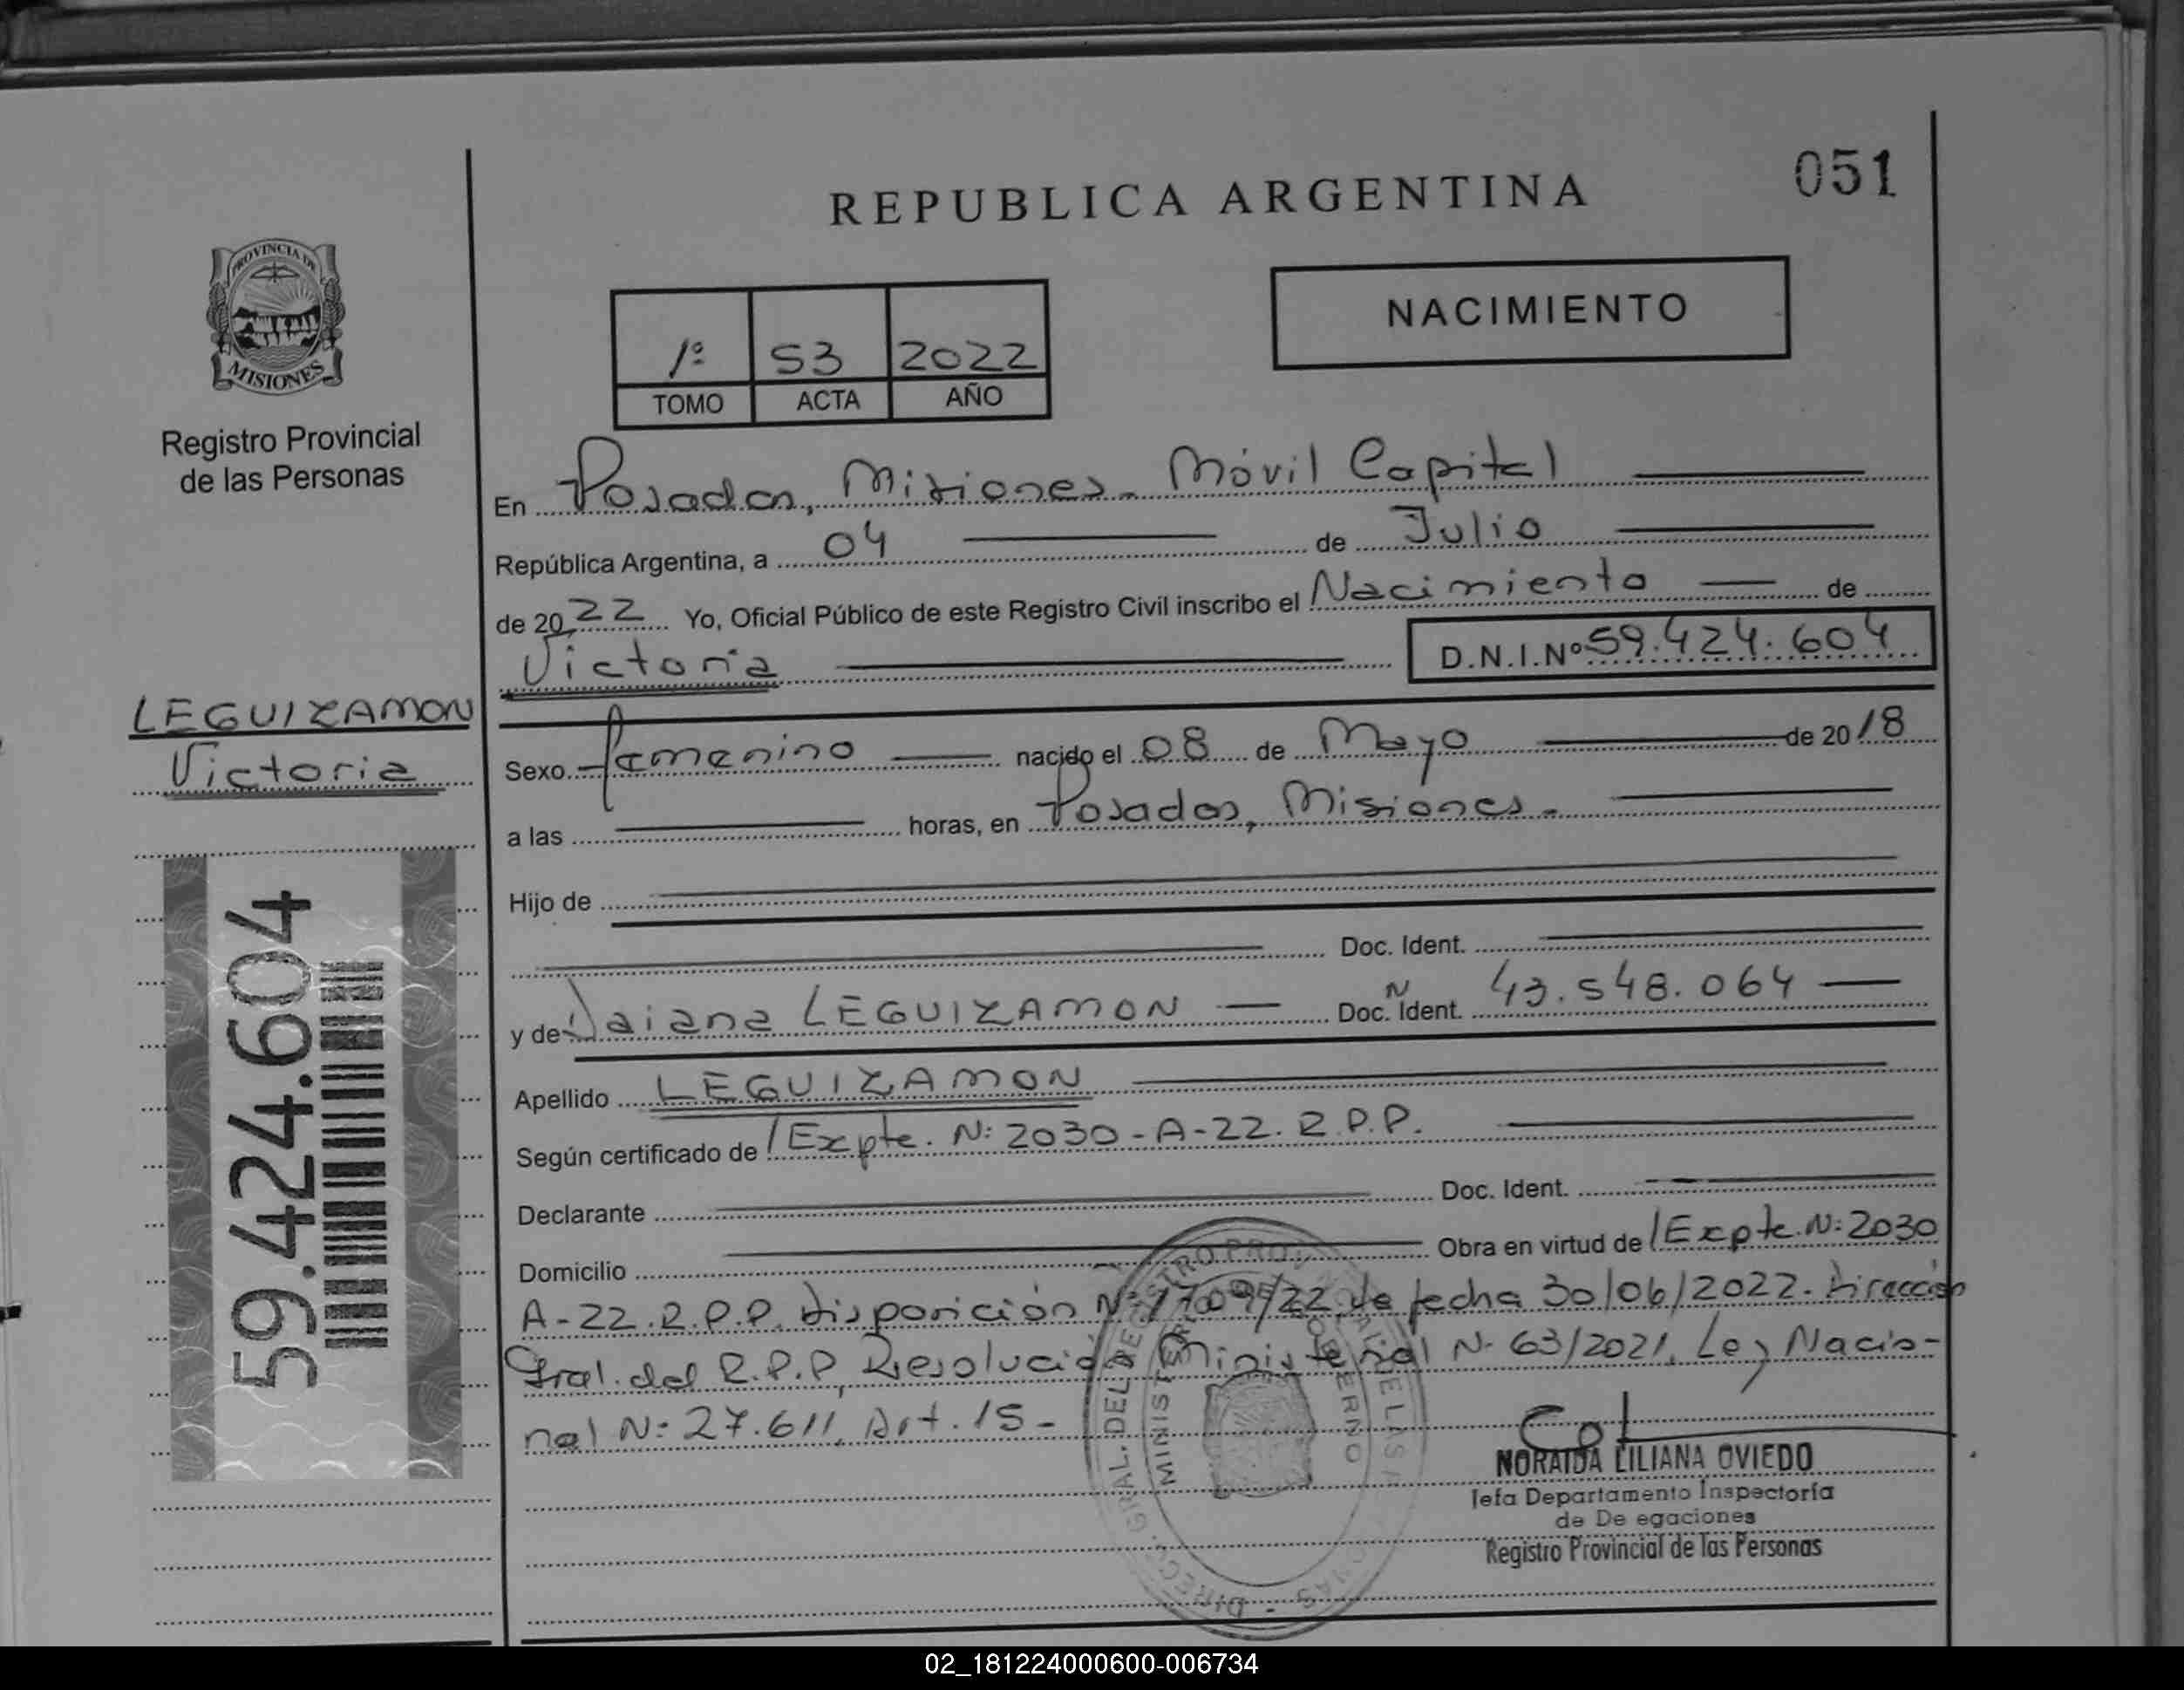 REPUBLICA ARGENTINA
051
PROVINCIA DE
MISIONES
Registro Provincial
de las Personas
1º 53 2022
TOMO ACTA AÑO
NACIMIENTO
En Posadas, Misiones. Móvil Capital
República Argentina, a 04 de Julio
de 2022 Yo, Oficial Público de este Registro Civil inscribo el Nacimiento de
Victoria D.N.I.Nº 59.424.604
LEGUIZAMON
Victoria
59.424.604
Sexo Femenino nacido el 08 de Mayo de 2018
a las horas, en Posadas, Misiones.
Hijo de
Doc. Ident.
y de Daiana LEGUIZAMON Doc. Ident. N 43.548.064
Apellido LEGUIZAMON
Según certificado de /Expte. N: 2030-A-22. R.P.P.
Declarante Doc. Ident.
Domicilio Obra en virtud de /Expte. N: 2030
A-22.R.P.P. Disposición Nº 1709/22 de fecha 30/06/2022. Dirección
Gral. del R.P.P, Resolución Ministerial N. 63/2021, Ley Nacio-
nal N: 27.611, Art. 15-
MINISTERIO GOBIERNO
NORAIDA LILIANA OVIEDO
Jefa Departamento Inspectoría
de De egaciones
Registro Provincial de las Personas
02_181224000600-006734